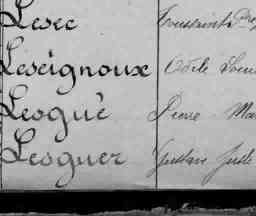 Lesec Toussainte
Leseignoux Odile Loui
Lesqué Pierre Ma
Lesquer Gustave Jusle